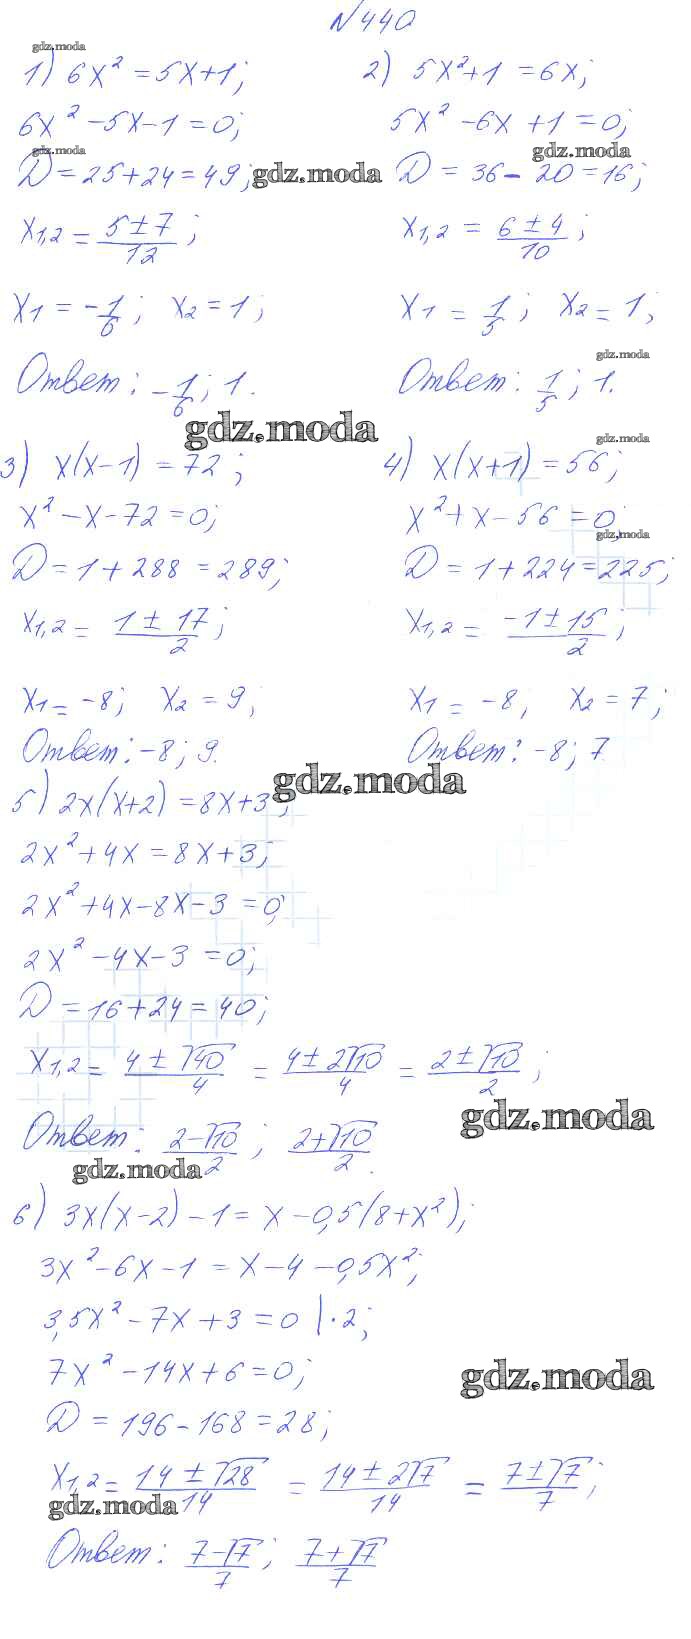 №440
gdz.moda
1) 6x² = 5x+1;
6x² - 5x - 1 = 0;
gdz.moda
D = 25+24 = 49;
gdz.moda
x1,2 = (5±7)/12;
x1 = -1/6; x2 = 1;
Ответ: -1/6; 1.
2) 5x²+1 = 6x;
5x² - 6x + 1 = 0;
gdz.moda
D = 36 - 20 = 16;
x1,2 = (6±4)/10;
x1 = 1/5; x2 = 1;
gdz.moda
Ответ: 1/5; 1.
gdz.moda
3) x(x-1) = 72;
x² - x - 72 = 0;
D = 1 + 288 = 289;
x1,2 = (1±17)/2;
x1 = -8; x2 = 9;
Ответ: -8; 9.
gdz.moda
4) x(x+1) = 56;
x² + x - 56 = 0
gdz.moda
D = 1 + 224 = 225;
x1,2 = (-1±15)/2;
x1 = -8, x2 = 7;
Ответ: -8; 7.
gdz.moda
5) 2x(x+2) = 8x+3;
2x² + 4x = 8x + 3;
2x² + 4x - 8x - 3 = 0;
2x² - 4x - 3 = 0;
D = 16 + 24 = 40;
x1,2 = (4±√40)/4 = (4±2√10)/4 = (2±√10)/2;
gdz.moda
Ответ: (2-√10)/2; (2+√10)/2.
gdz.moda
6) 3x(x-2) - 1 = x - 0,5(8+x²);
3x² - 6x - 1 = x - 4 - 0,5x²;
3,5x² - 7x + 3 = 0 |·2;
7x² - 14x + 6 = 0;
gdz.moda
D = 196 - 168 = 28;
x1,2 = (14±√28)/14 = (14±2√7)/14 = (7±√7)/7;
gdz.moda
Ответ: (7-√7)/7; (7+√7)/7